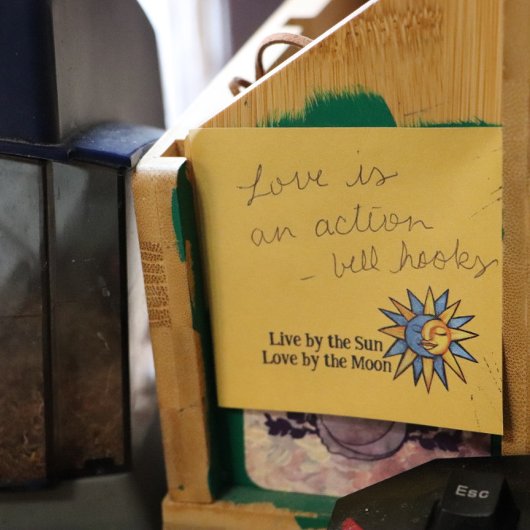 Love is
an action
- bell hooks
Live by the Sun
Love by the Moon
Esc